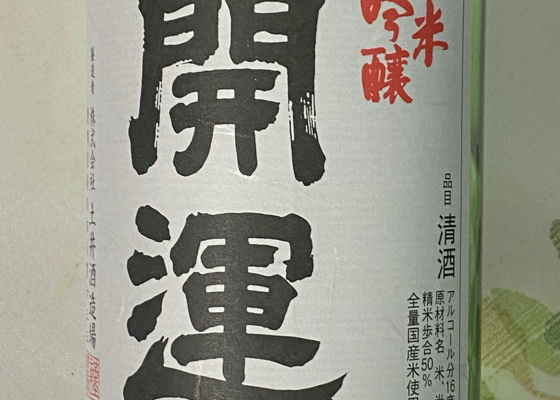 米
吟醸
開運
品目 清酒
アルコール分16度
原材料名 米、米
精米歩合50%
全量国産米使用
製造者 株式会社 土井酒造場